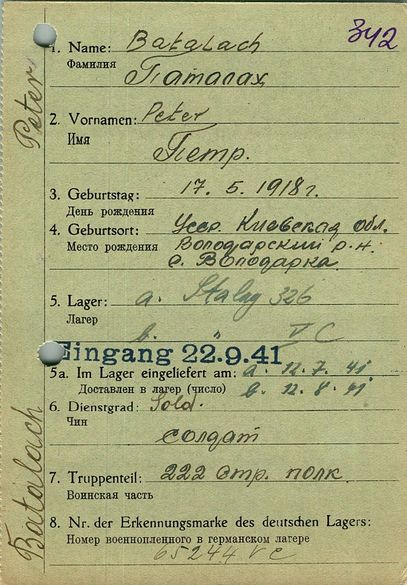 342
1. Name: Batalach
Фамилия
Паталах
2. Vornamen: Peter
Имя
Петр.
3. Geburtstag: 17. 5. 1918 г.
День рождения
4. Geburtsort: Усср. Киевская обл.
Место рождения Володарский р-н
с. Володарка
5. Lager: a. Stalag 326
Лагер
b. " V C
Eingang 22.9.41
5a. Im Lager eingeliefert am: a. 12. 7. 41
Доставлен в лагер (число) b. 12. 8. 41
6. Dienstgrad: Sold.
Чин
солдат
7. Truppenteil: 222 стр. полк
Воинская часть
8. Nr. der Erkennungsmarke des deutschen Lagers:
Номер военнопленного в германском лагере
65244 V C
Batalach Peter